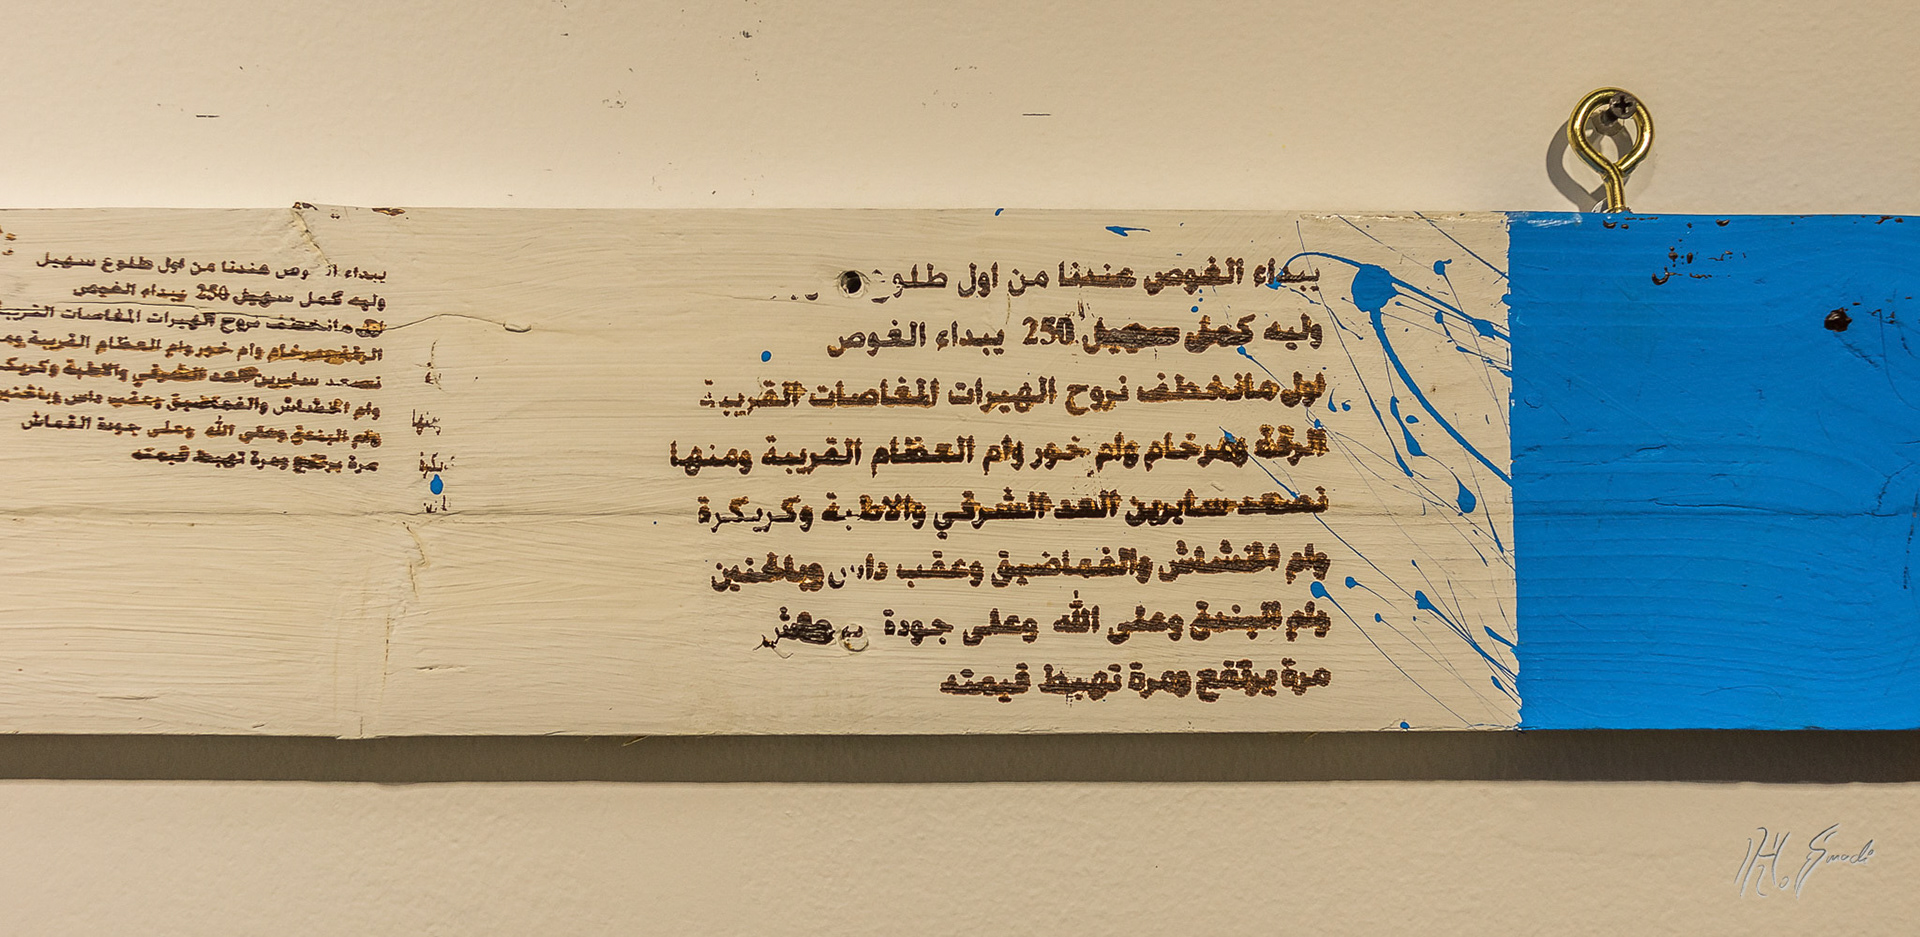 يبداء الغوص عندنا من اول طلوع
وليه كمل سهيل 250 يبداء الغوص
اول مانخطف نروح الهيرات المغاصات القريبة
الرقة ومرخام وام خور وام العظام القريبة ومنها
نصعد سايرين العد الشرقي والاطبة وكريكرة
وام الخشاش والغماضيق وعقب داس وبالحنين
وام البندق وعلى الله وعلى جودة
مرة يرتفع ومرة تهبط قيمته
يبداء عندنا من اول طلوع سهيل
وليه كمل سهيل 250 يبداء الغوص
مانخطف نروح الهيرات المغاصات
الرقة ومرخام وام خور وام العظام القريبة
نصعد سايرين العد الشرقي والاطبة
وام الخشاش والغماضيق وعقب داس
وام البندق وعلى الله وعلى جودة القماش
مرة يرتفع ومرة تهبط قيمته
ومنها